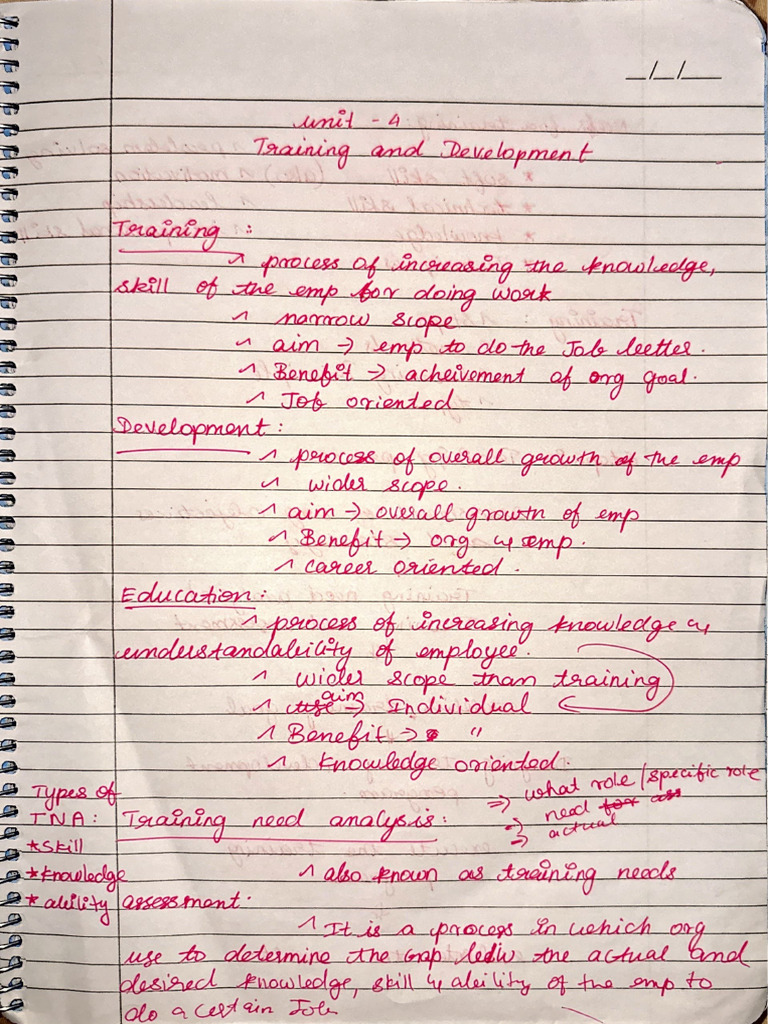 _/_/__
Unit - 4
Training and Development
Training :
^ process of increasing the knowledge,
skill of the emp for doing work
^ narrow scope
^ aim → emp to do the Job better.
^ Benefit → acheivement of org goal.
^ Job oriented
Development :
^ process of overall growth of the emp
^ wider scope.
^ aim → overall growth of emp
^ Benefit → org & emp.
^ career oriented.
Education :
^ process of increasing knowledge &
understandability of employee.
^ wider scope than training
^ aim → Individual
^ Benefit → "
^ knowledge oriented.
⇒ what role / specific role
⇒ need
⇒ actual
Types of
TNA :
*skill
*knowledge
*ability
Training need analysis :
^ also known as training needs
assessment.
^ It is a process in which org
use to determine the Gap b/w the actual and
desired knowledge, skill & ability of the emp to
do a certain Job